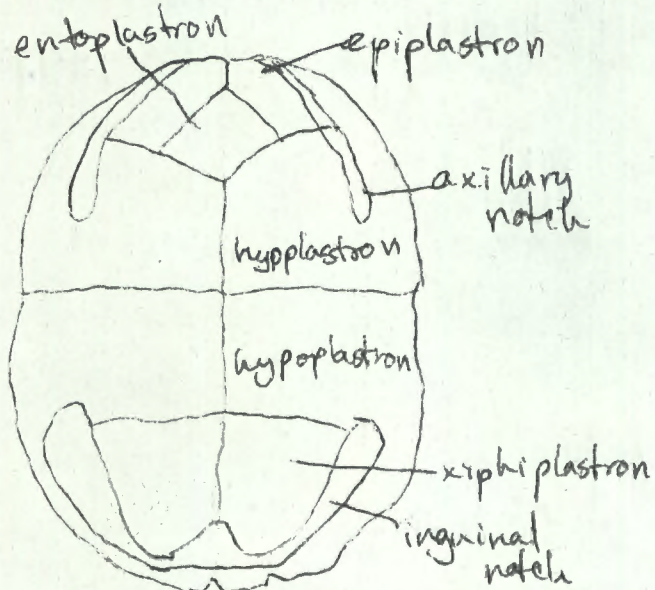 entoplastron
epiplastron
axillary
notch
hyoplastron
hypoplastron
xiphiplastron
inguinal
notch